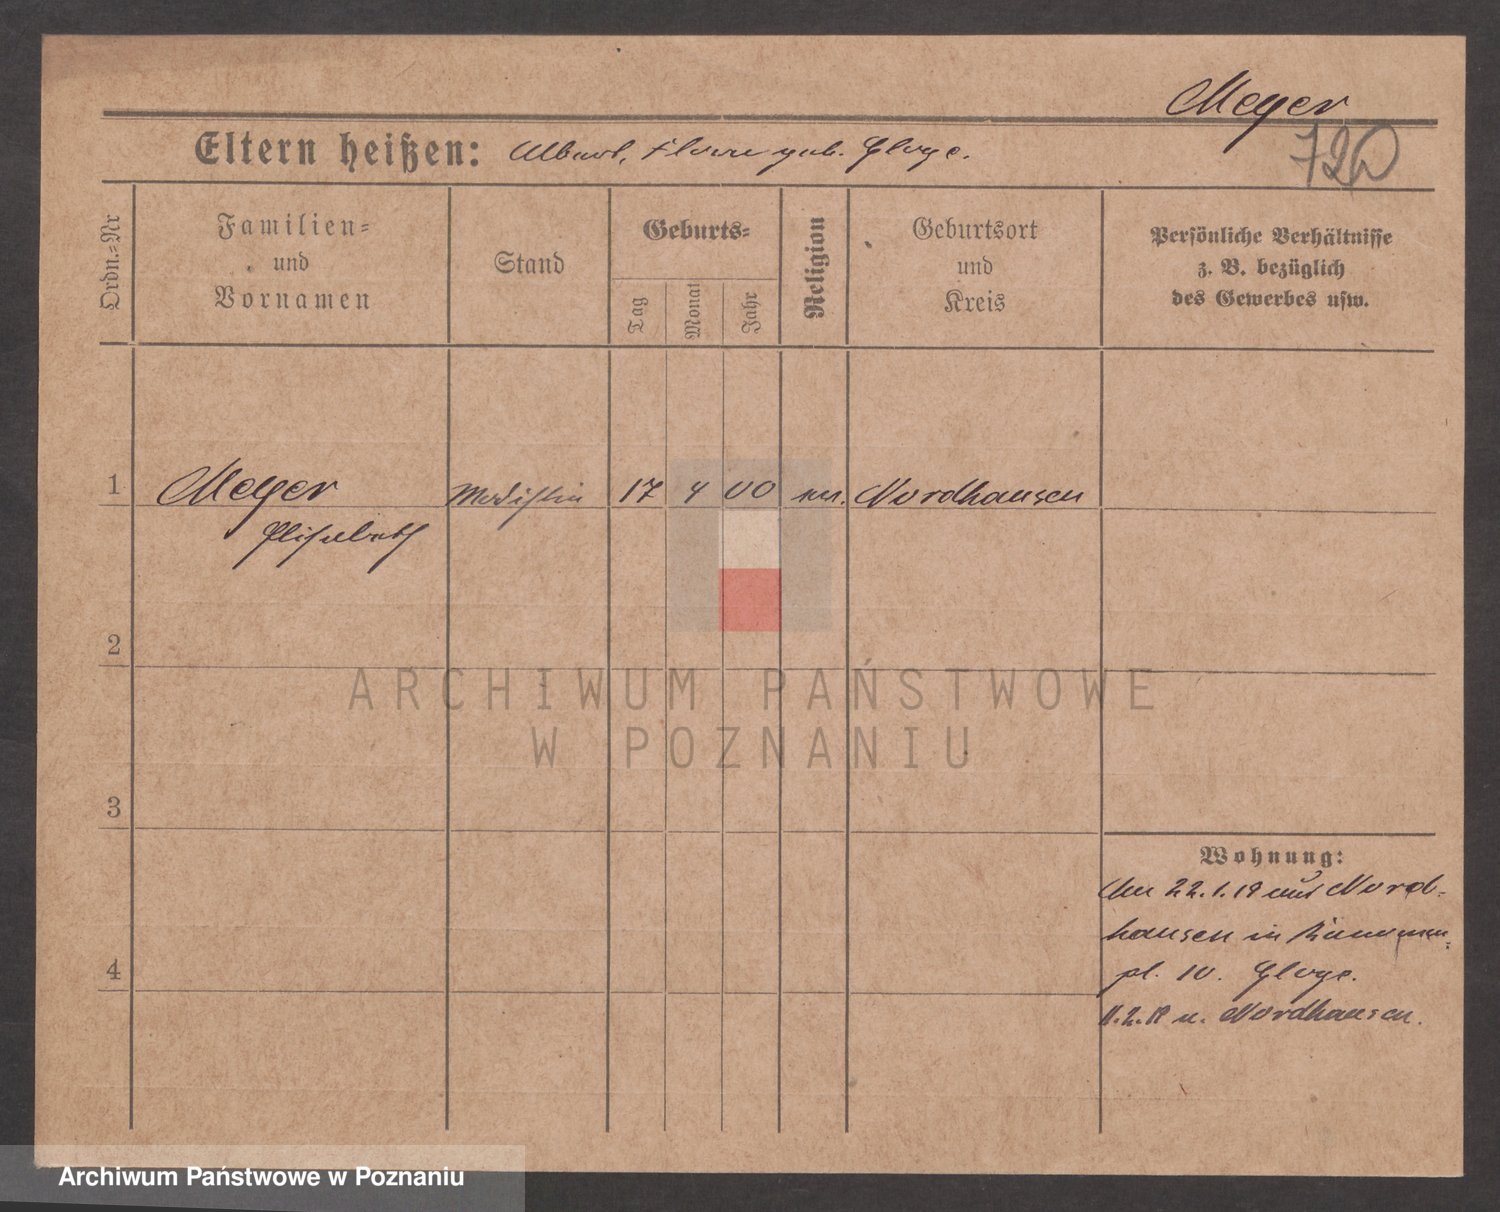 Meyer
Eltern heißen: Albert, Flora geb. Gloge.
720
Ordn.-Nr
Familien-
und
Vornamen
Stand
Geburts-
Tag
Monat
Jahr
Religion
Geburtsort
und
Kreis
Persönliche Verhältnisse
z. B. bezüglich
des Gewerbes usw.
1 Meyer Modistin 17 4 00 Nordhausen
Elisabeth
2
3
4
Wohnung:
Am 22.1.19 aus Nord-
hausen in
pl. 10. Gloge.
11.2.19 n. Nordhausen.
ARCHIWUM PAŃSTWOWE
W POZNANIU
Archiwum Państwowe w Poznaniu